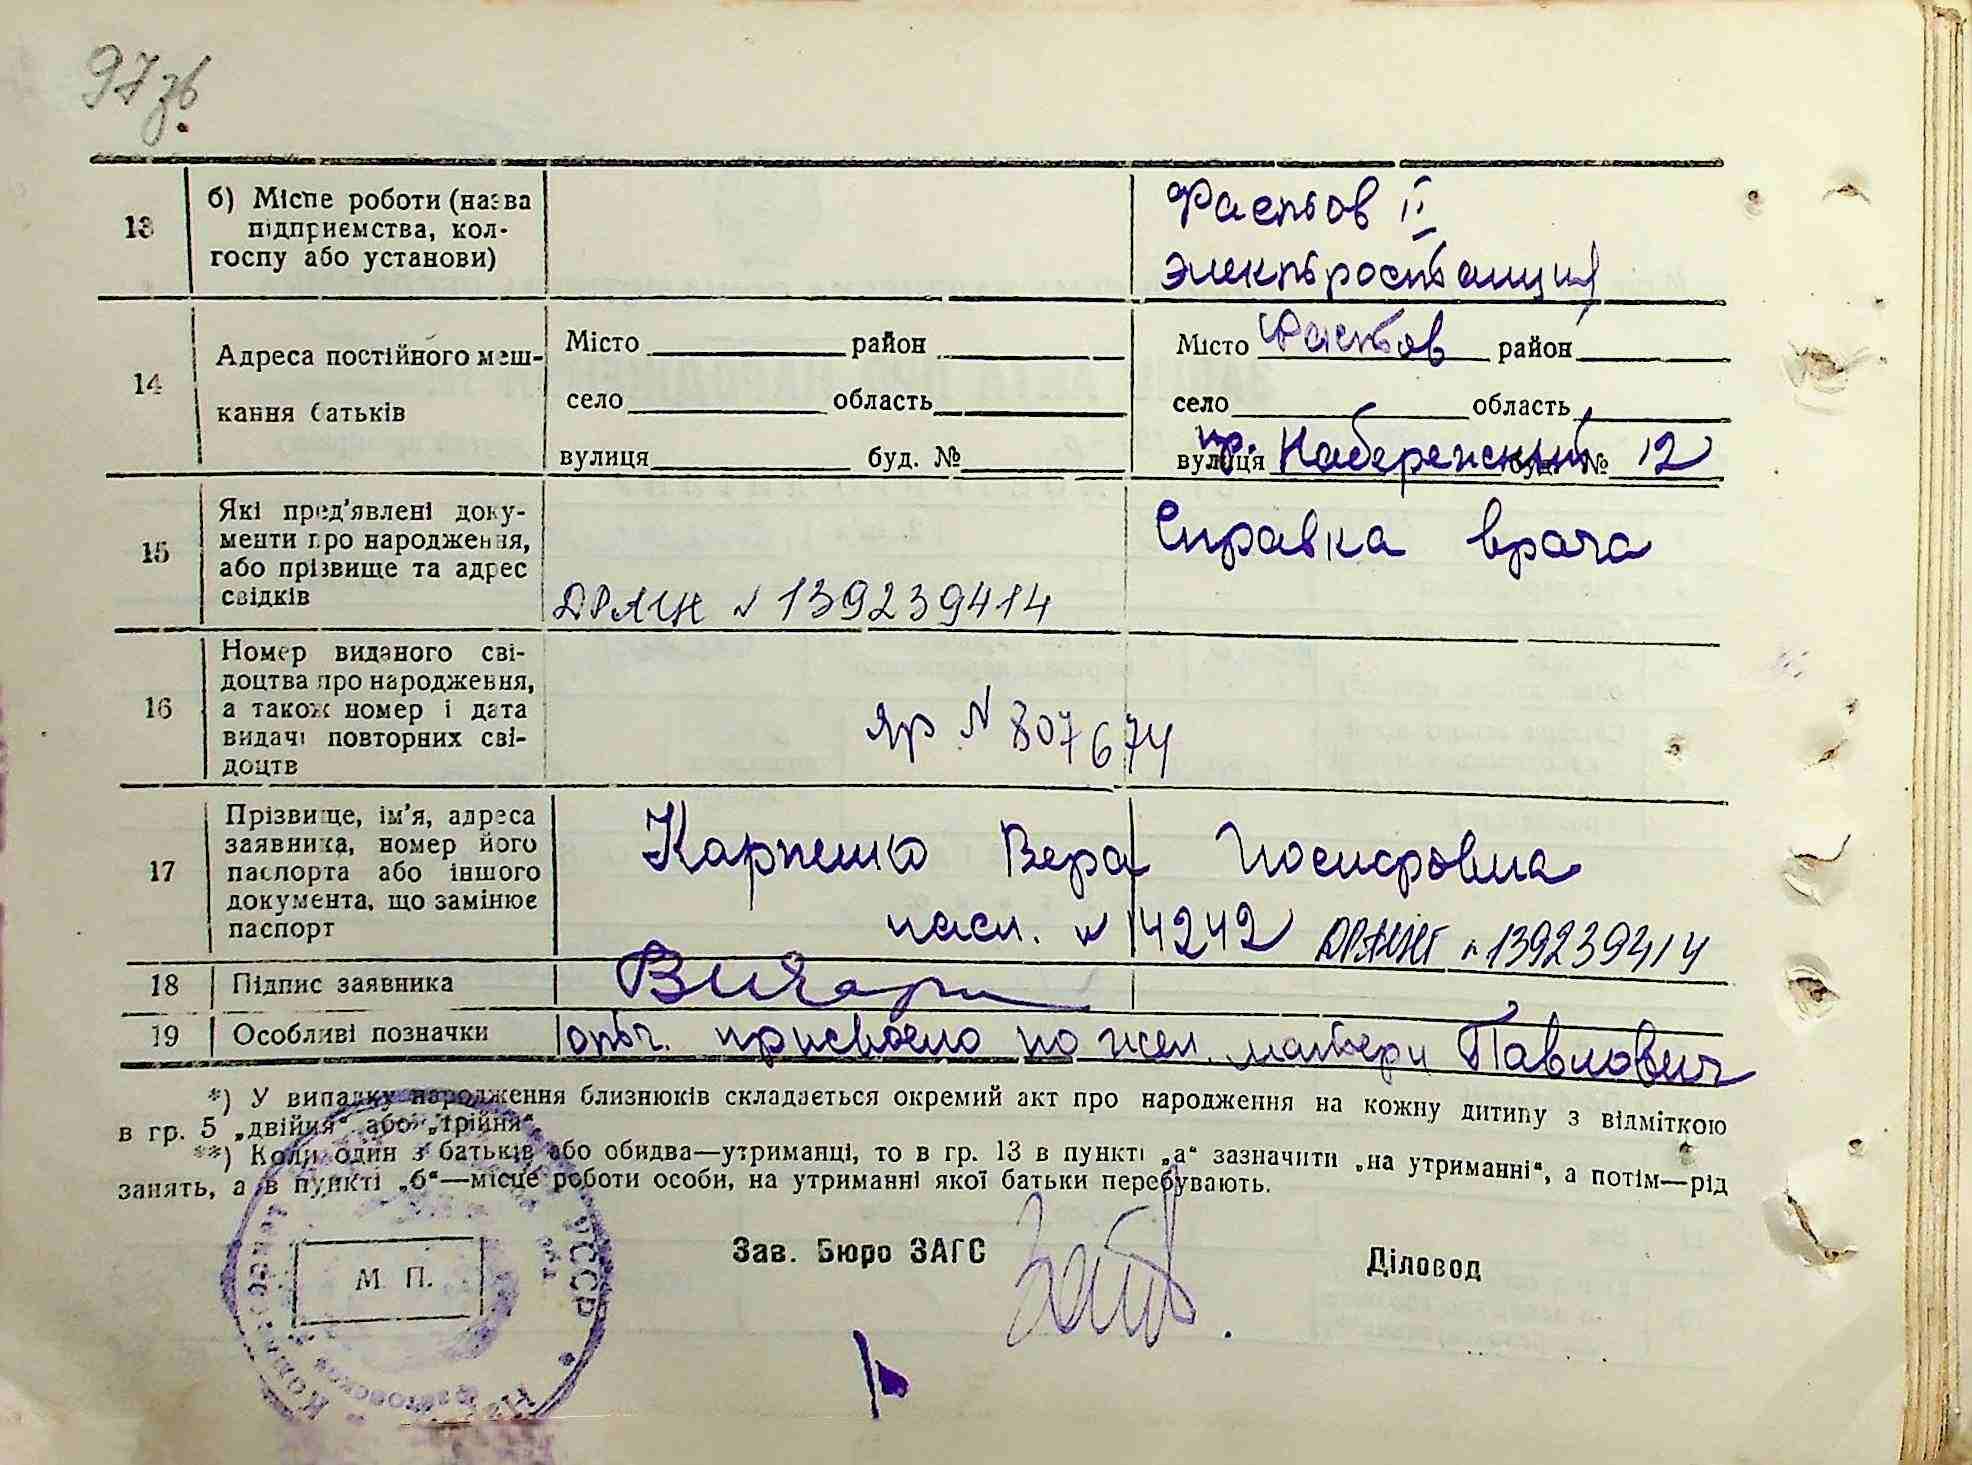 97зв.
13
б) Місце роботи (назва
підприємства, кол-
госпу або установи)
Фастов II
электростанция
14
Адреса постійного меш-
кання батьків
Місто район
село область
вулиця буд. №
Місто Фастов район
село область
вулиця пр. Набережный буд. № 12
15
Які пред'явлені доку-
менти про народження,
або прізвище та адрес
свідків
Справка врача
ДРАЦН № 139239414
16
Номер виданого сві-
доцтва про народження,
а також номер і дата
видачі повторних сві-
доцтв
ЯР № 807674
17
Прізвище, ім'я, адреса
заявника, номер його
паспорта або іншого
документа, що замінює
паспорт
Карпенко Вера Иосифовна
пасп. № 14242 139239414
18
Підпис заявника
19
Особливі позначки
отч. присвоено по жел. матери Павлович
*) У випадку народження близнюків складається окремий акт про народження на кожну дитину з відміткою
в гр. 5 „двійня“ або „трійня“.
**) Коли один з батьків або обидва—утриманці, то в гр. 13 в пункті „а“ зазначити „на утриманні“, а потім—рід
занять, а в пункті „б“—місце роботи особи, на утриманні якої батьки перебувають.
Зав. Бюро ЗАГС
Діловод
М. П.
УССР